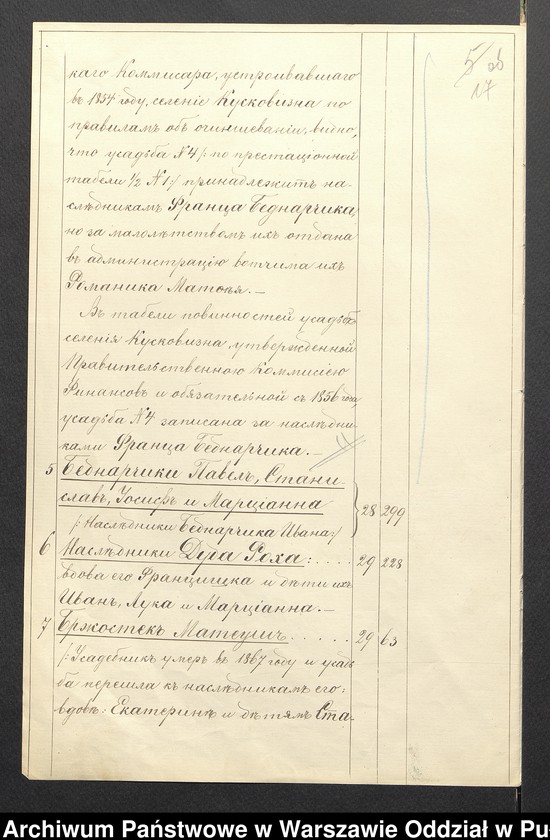 5/об
17
каго Коммисара, устроивавшаго
въ 1854 году, селеніе Кусковизна по
правиламъ объ очиншеваніи, видно,
что усадьба № 4 /: по престаціонной
табели ½ № 1:/ принадлежитъ на-
слѣдникамъ Франца Беднарчика,
но за малолѣтствомъ ихъ отдана
въ администрацію вотчима ихъ
Романика Матвѣя.—
Въ табели повинностей усадьбъ
селенія Кусковизна, утвержденной
Правительственною Коммисіею
Финансовъ и обязательной съ 1856 года,
усадьба № 4 записана за наслѣдни-
ками Франца Беднарчика.—
5 Беднарчики Павелъ, Стани-
славъ, Іосифъ и Марціанна } 28 299
/: Наслѣдники Беднарчика Ивана:/
6 Наслѣдники Дура Роха: . . . . 29 228
вдова его Францишка и дѣти ихъ
Иванъ, Лука и Марціанна.—
7 Бржостекъ Матеушъ . . . . . 29 63
/: Усадебникъ умеръ въ 1867 году и усадь-
ба перешла къ наслѣдникамъ его:
вдовѣ: Екатеринѣ и дѣтямъ Ста-
Archiwum Państwowe w Warszawie Oddział w Pu